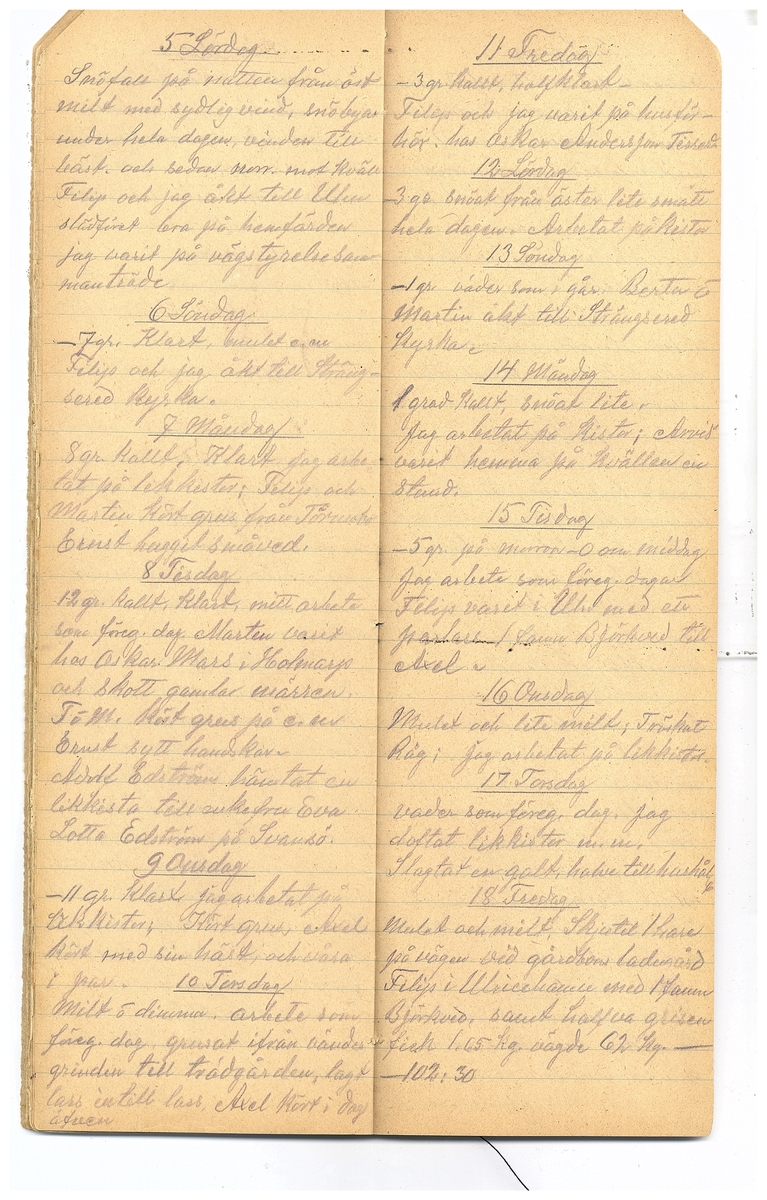 5 Lördag
Snöfall på natten från öst
milt med sydlig vind, snöbyar
under hela dagen, vinden till
väst. och sedan norr. mot kväll
Filip och jag åkt till Uhn
slädföret bra på hemfärden
jag varit på vägstyrelsesam
manträde
6 Söndag
-7 gr. Klart, mulet e.m
Filip och jag åkt till Sträng-
sered kyrka.
7 Måndag
8 gr. kallt, Klart jag arbe
tat på likkistor; Filip och
Martin kört grus från
Ernst hugget småved.
8 Tisdag
12 gr. kallt, Klart, mitt arbete
som föreg. dag. Marten varit
hos Oskar Mars i Holmarp
och skött gamla märren.
F o M. kört grus på e.m
Ernst sytt handskar
Adolf Edström hämtat en
likkista till enkefru Eva
Lotta Edström på Svansö.
9 Onsdag
-11 gr. Klart jag arbetat på
likkistor; Kört grus, Axel
kört med sin häst, och våra
i par.
10 Torsdag
Milt o dimma. arbete som
föreg. dag, grusat ifrån vänder
grinden till trädgården, lagt
lass intill lass, Axel kört i dag
äfven
11 Fredag
-3 gr. kallt, halfklart-
Filip och jag varit på husför-
hör. hos Oskar Andersson
12 Lördag
-3 gr. snöat från öster lite smått
hela dagen. Arbetat på kistor
13 Söndag
-1 gr. väder som i går. Berta o
Martin åkt till Strängsered
Kyrka.
14 Måndag
1 grad kallt, snöat lite.
Jag arbetat på kistor; Arvid
varit hemma på kvällen en
stund.
15 Tisdag
-5 gr. på morron -0 om middag
Jag arbete som föreg. dagar
Filip varit i Uhn med ett
parlass 1 famn Björkved till
Axel.
16 Onsdag
Mulet och lite milt; Tröskat
Råg; jag arbetat på likkistor
17 Torsdag
väder som föreg. dag. jag
likkistor m.m.
Slagtat en galt, halva till hushåll
18 Fredag
Mulet och milt, Skjutit 1 hare
på vägen vid ladugård
Filip i Ulricehamn med 1 famn
Björkved, samt halfva grisen
fick 1.65 kg. vägde 62 kg. —
-102:30